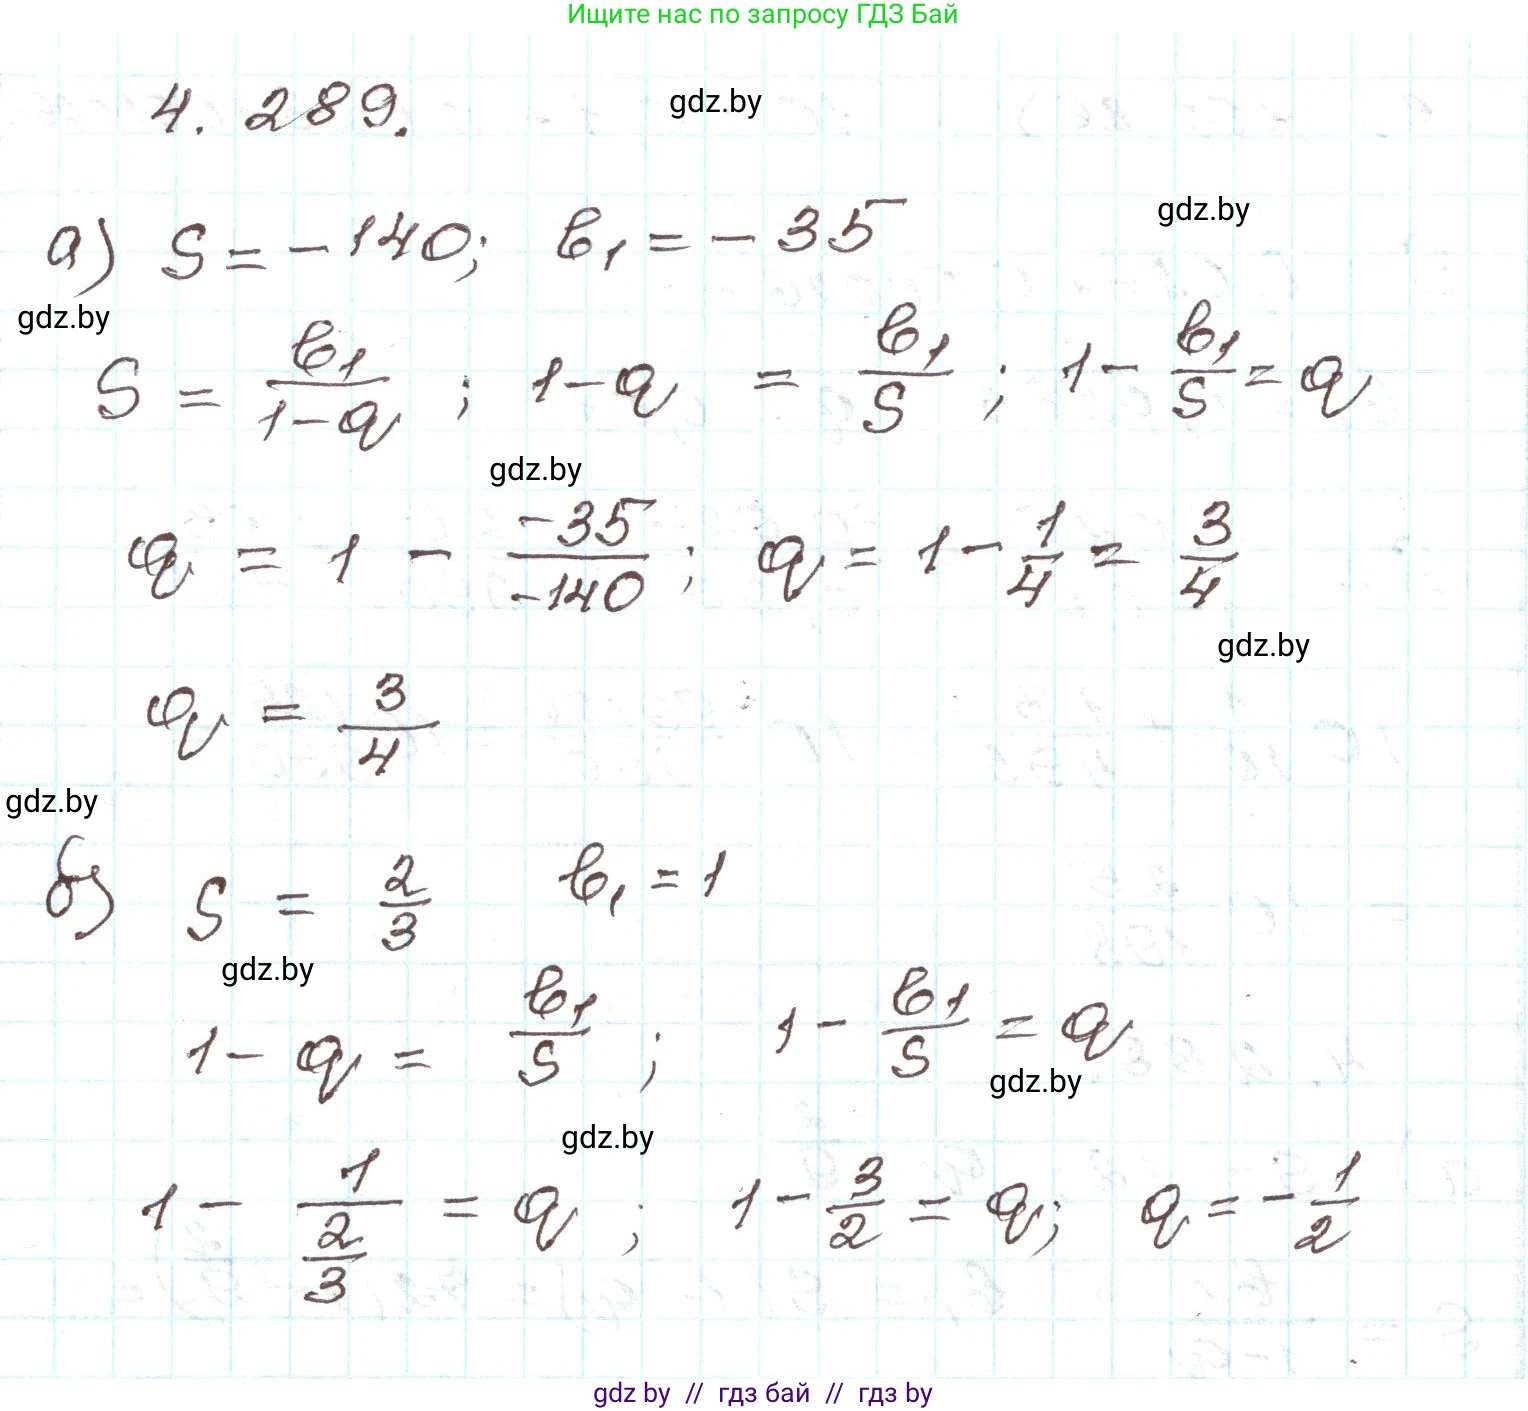 Ищите нас по запросу ГДЗ Бай
4. 289.
gdz.by
а) S = - 140; b₁ = - 35
gdz.by
gdz.by
S = b₁/(1-q) ; 1-q = b₁/S ; 1 - b₁/S = q
gdz.by
q = 1 - (-35)/(-140) ; q = 1 - 1/4 = 3/4
gdz.by
q = 3/4
gdz.by
б) S = 2/3 b₁ = 1
gdz.by
1 - q = b₁/S ; 1 - b₁/S = q
gdz.by
gdz.by
1 - 1/(2/3) = q ; 1 - 3/2 = q; q = - 1/2
gdz by // гдз бай // гдз by